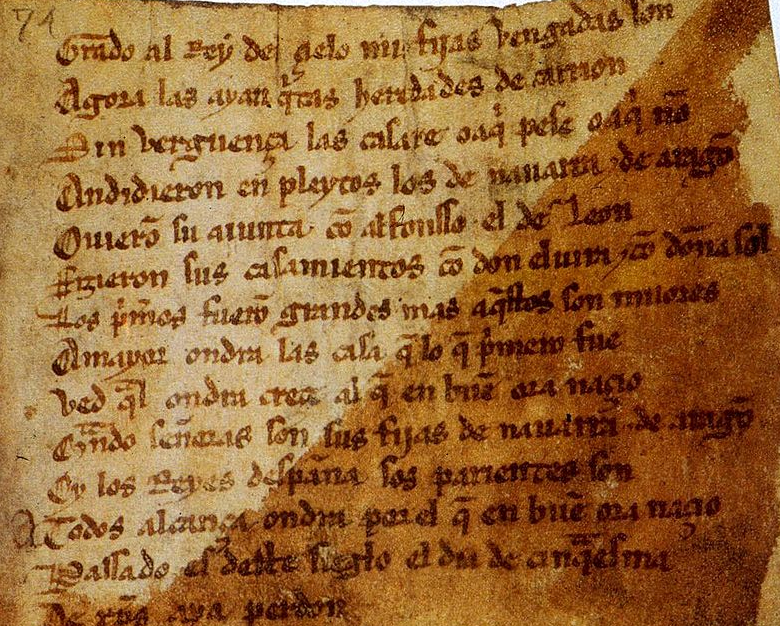 74
Grado al Rey del çielo mis fijas vengadas son
Agora las ayan q̃tas heredades de carrion
Sin verguença las casare oaq̃ pese oaq̃ nõ
Andidieron en pleytos los de nauarra ⁊ de aragõ
Ouierõ su aiunta cõ alfonsso el de Leon
Fizieron sus casamientos cõ don eluira ⁊ cõ doña sol
Los p̃meros fuerõ grandes mas aq̃stos son miiores
Amayor ondra las casa q̃ lo q̃ p̃mero fue
Ved q̃l ondra creçe al q̃ en buẽ ora naçio
Q̃ndo señeras son sus fijas de nauarra ⁊ de aragõ
Oy los Reyes despãna sos parientes son
A Todos alcança ondra por el q̃ en buẽ ora naçio
Passado es deste sieglo el dia de cinq̃esma
De xp̃s aya perdon